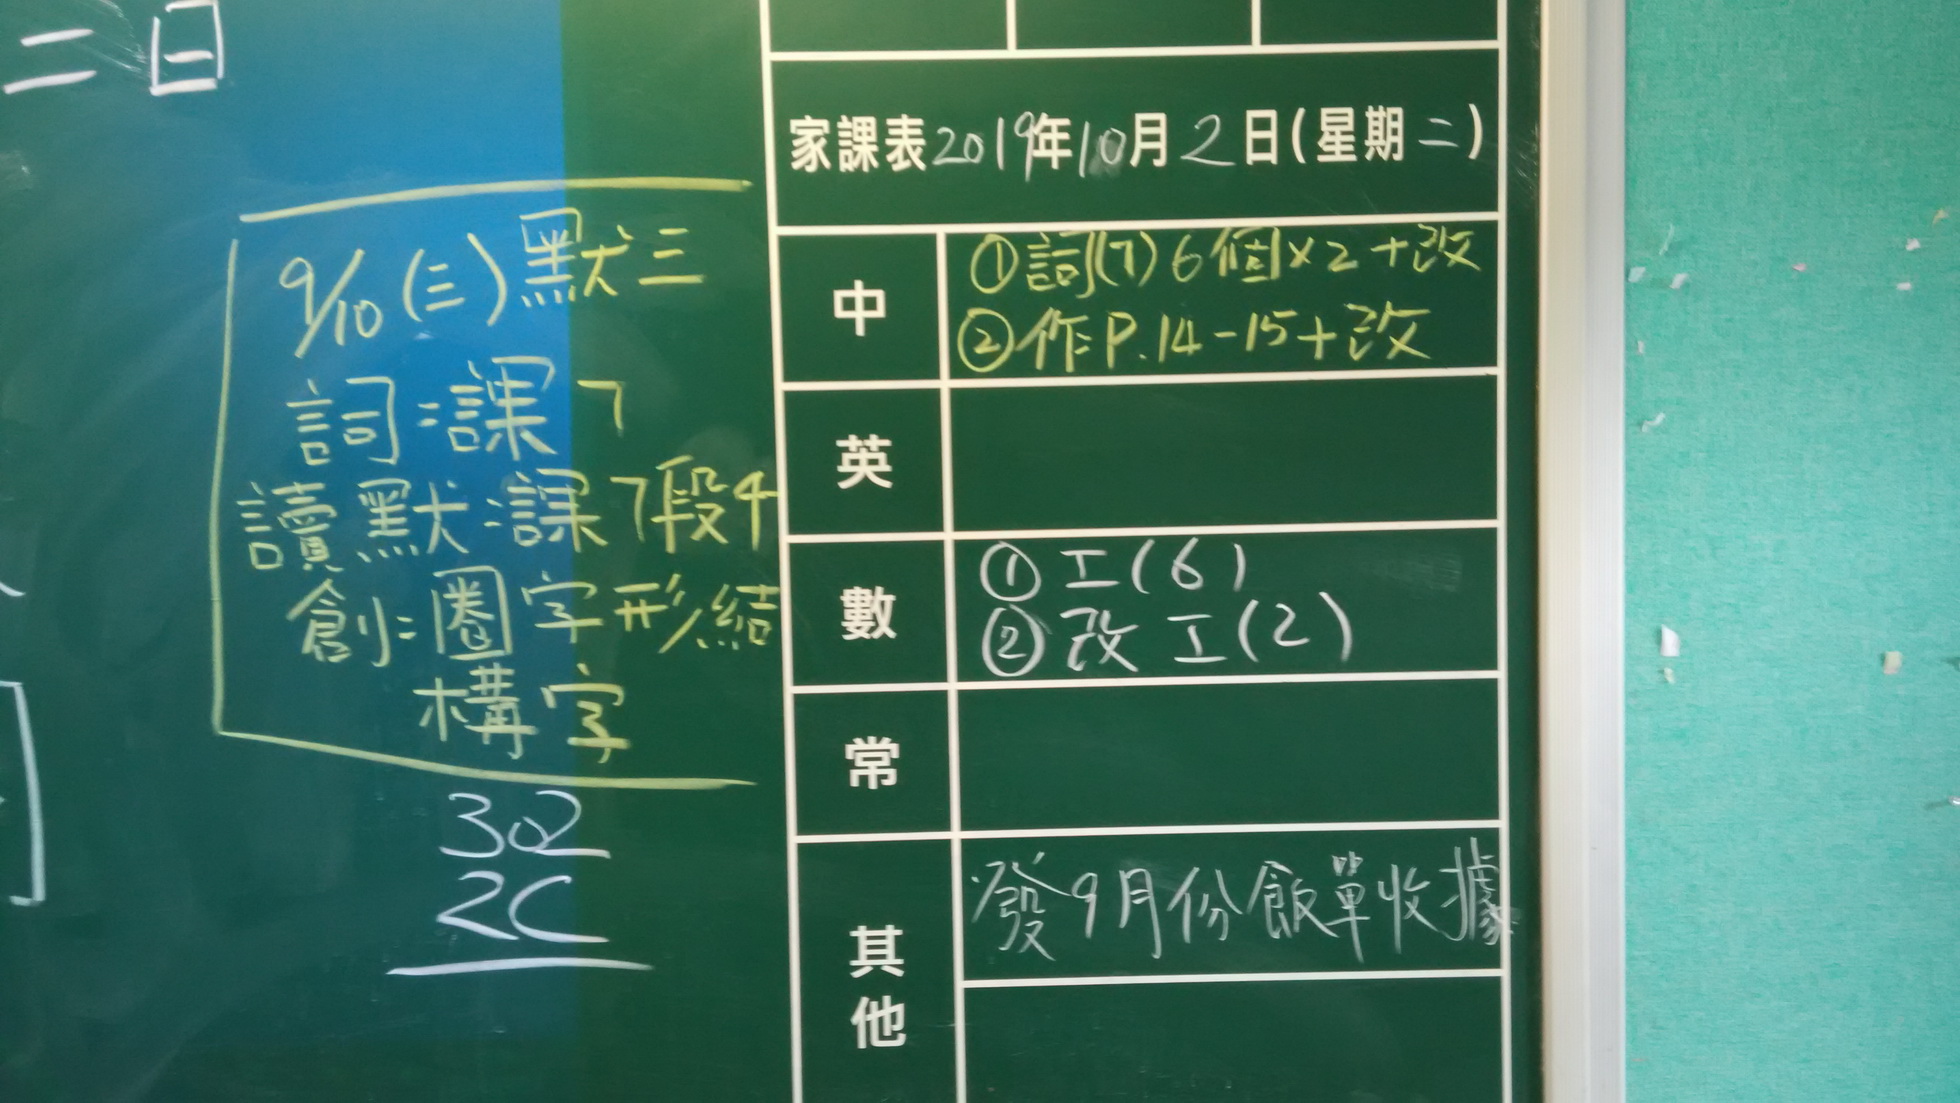 二日
9/10(三)默三
詞:課7
讀默:課7段4
創:圈字形結
構字
302
2C
家課表2019年10月2日(星期二)
中
①詞(7)6個×2+改
②作P.14-15+改
英
數
①工(6)
②改工(2)
常
其他
發9月份飯單收據